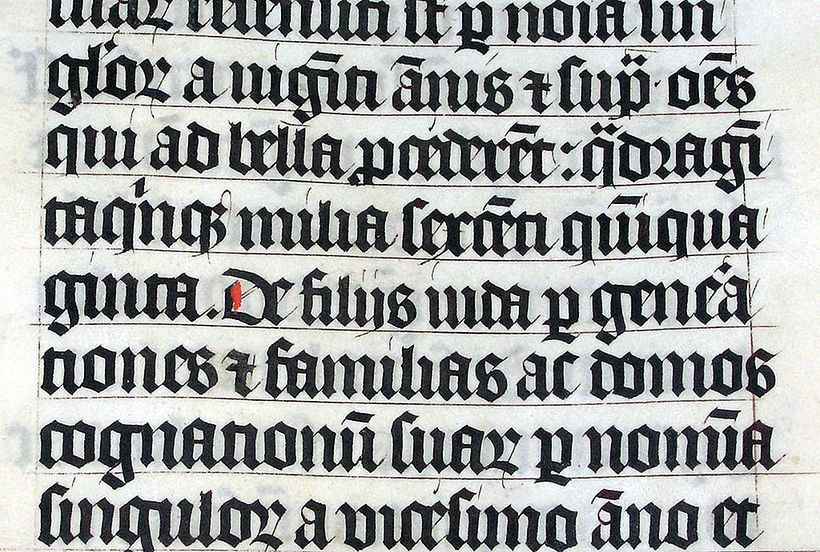 suaꝝ recensiti st̄ ꝑ noīa sin
gl'oꝝ a uigīti ānis ⁊ sup̄· oēs
qui ad bella ꝓcederēt: qͣdragī
taqͥnqꝫ milia sexcēti qūiqua
ginta. De filijs iuda ꝑ gene'a
tiones ⁊ familias ac domos
cognationū suaꝝ ꝑ nomīa
singuloꝝ a vicesimo āno et